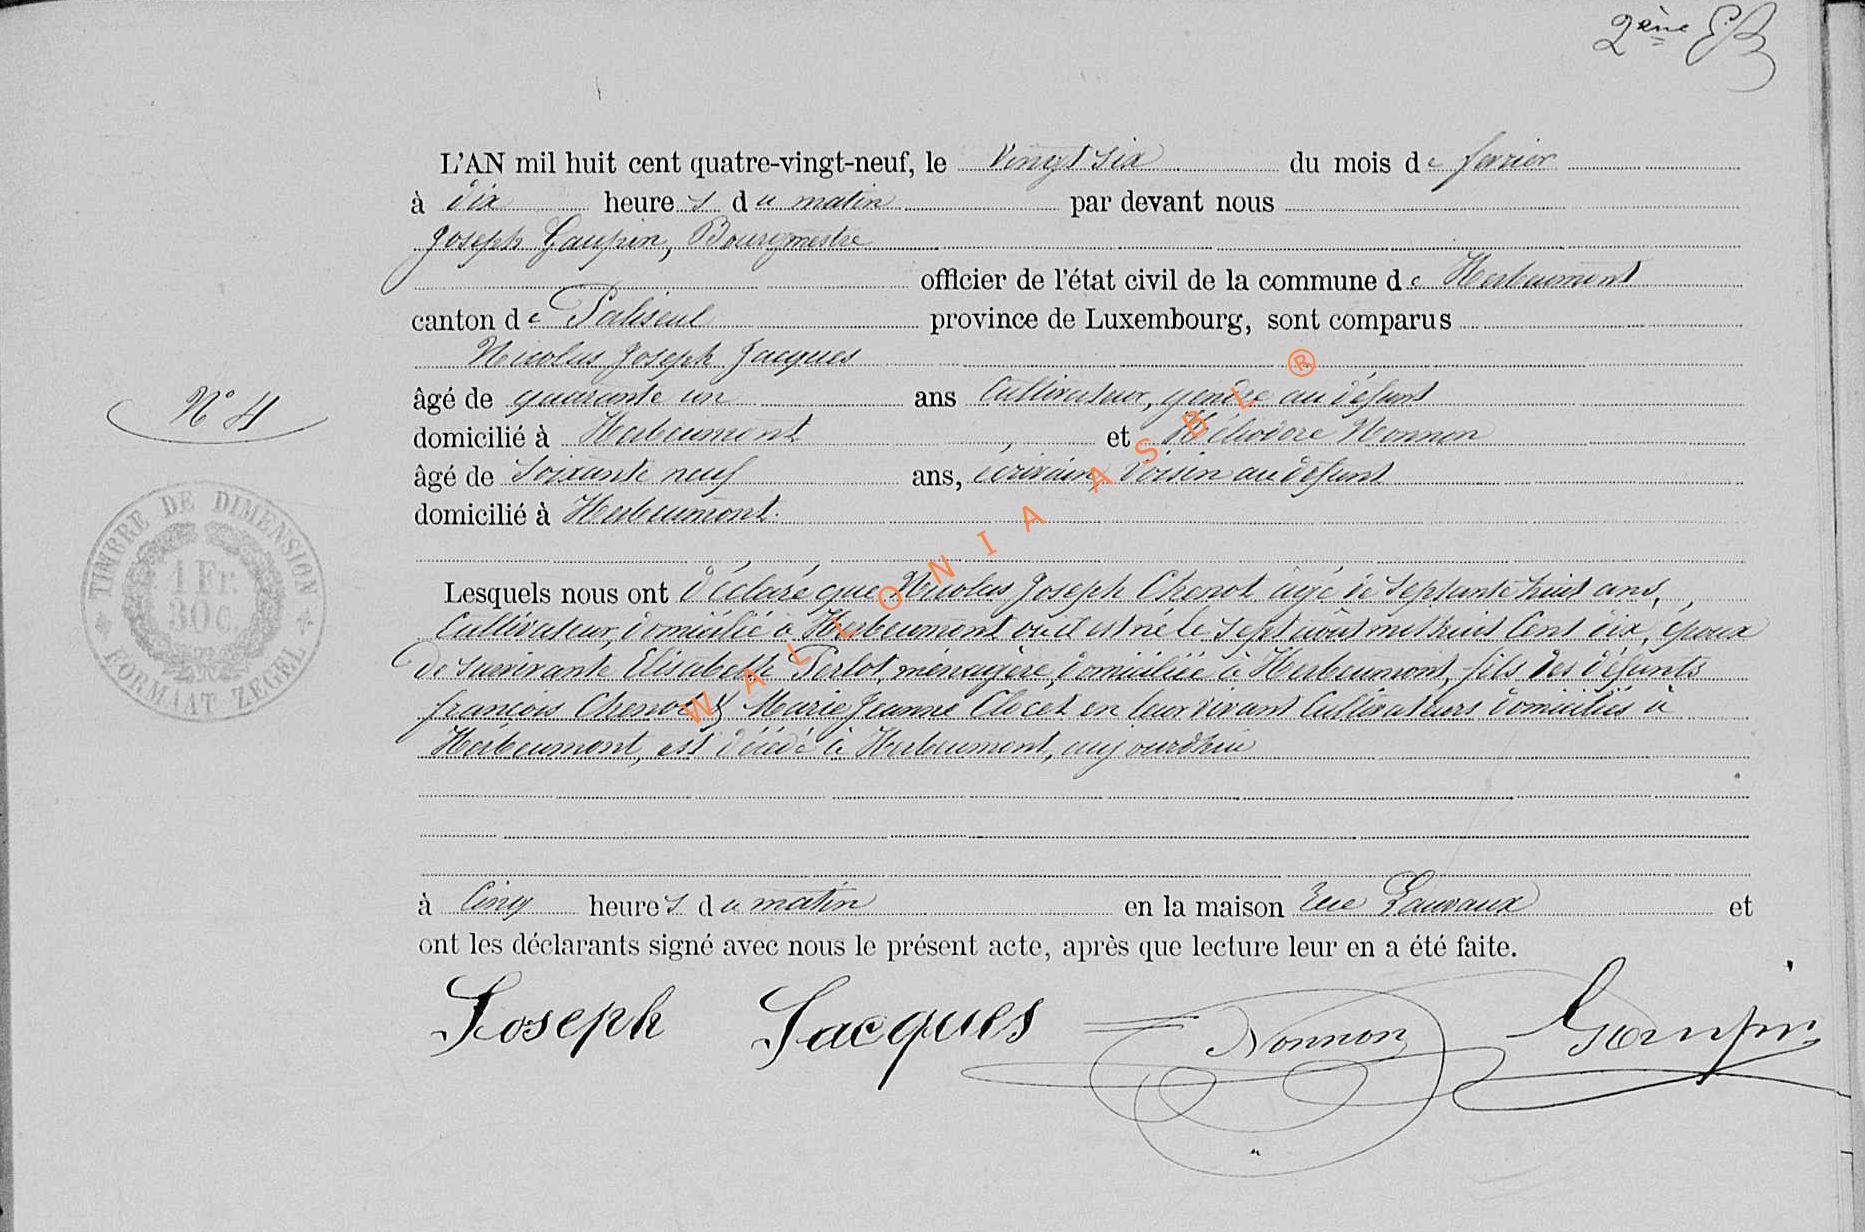 2ème
L'AN mil huit cent quatre-vingt-neuf, le vingt six du mois de fevrier
à dix heures du matin par devant nous
Joseph Gaupin, Bourgmestre
officier de l'état civil de la commune de Herbeumont
canton de Paliseul province de Luxembourg, sont comparus
Nicolas Joseph Jacques
âgé de quarante un ans Cultivateur, gendre au défunt
domicilié à Herbeumont, et Héliodore Nonnon
âgé de Soixante neuf ans, écrivain, voisin au défunt
domicilié à Herbeumont.
N° 4
TIMBRE DE DIMENSION
1 Fr. 30 c.
FORMAAT ZEGEL
Lesquels nous ont déclaré que Nicolas Joseph Chenot âgé de septante huit ans,
Cultivateur, domicilié à Herbeumont où il est né le sept août mil huit cent dix, époux
de survivante Elisabeth Perlot, ménagère, domiciliée à Herbeumont, fils des défunts
francois Chenot & Marie Jeanne Clocet en leur vivant Cultivateurs domiciliés à
Herbeumont, est décédé à Herbeumont, aujourdhui
à Cinq heures du matin en la maison rue Lauvaux et
ont les déclarants signé avec nous le présent acte, après que lecture leur en a été faite.
Joseph Jacques Nonnon Gaupin
WALLONIA ASBL ®